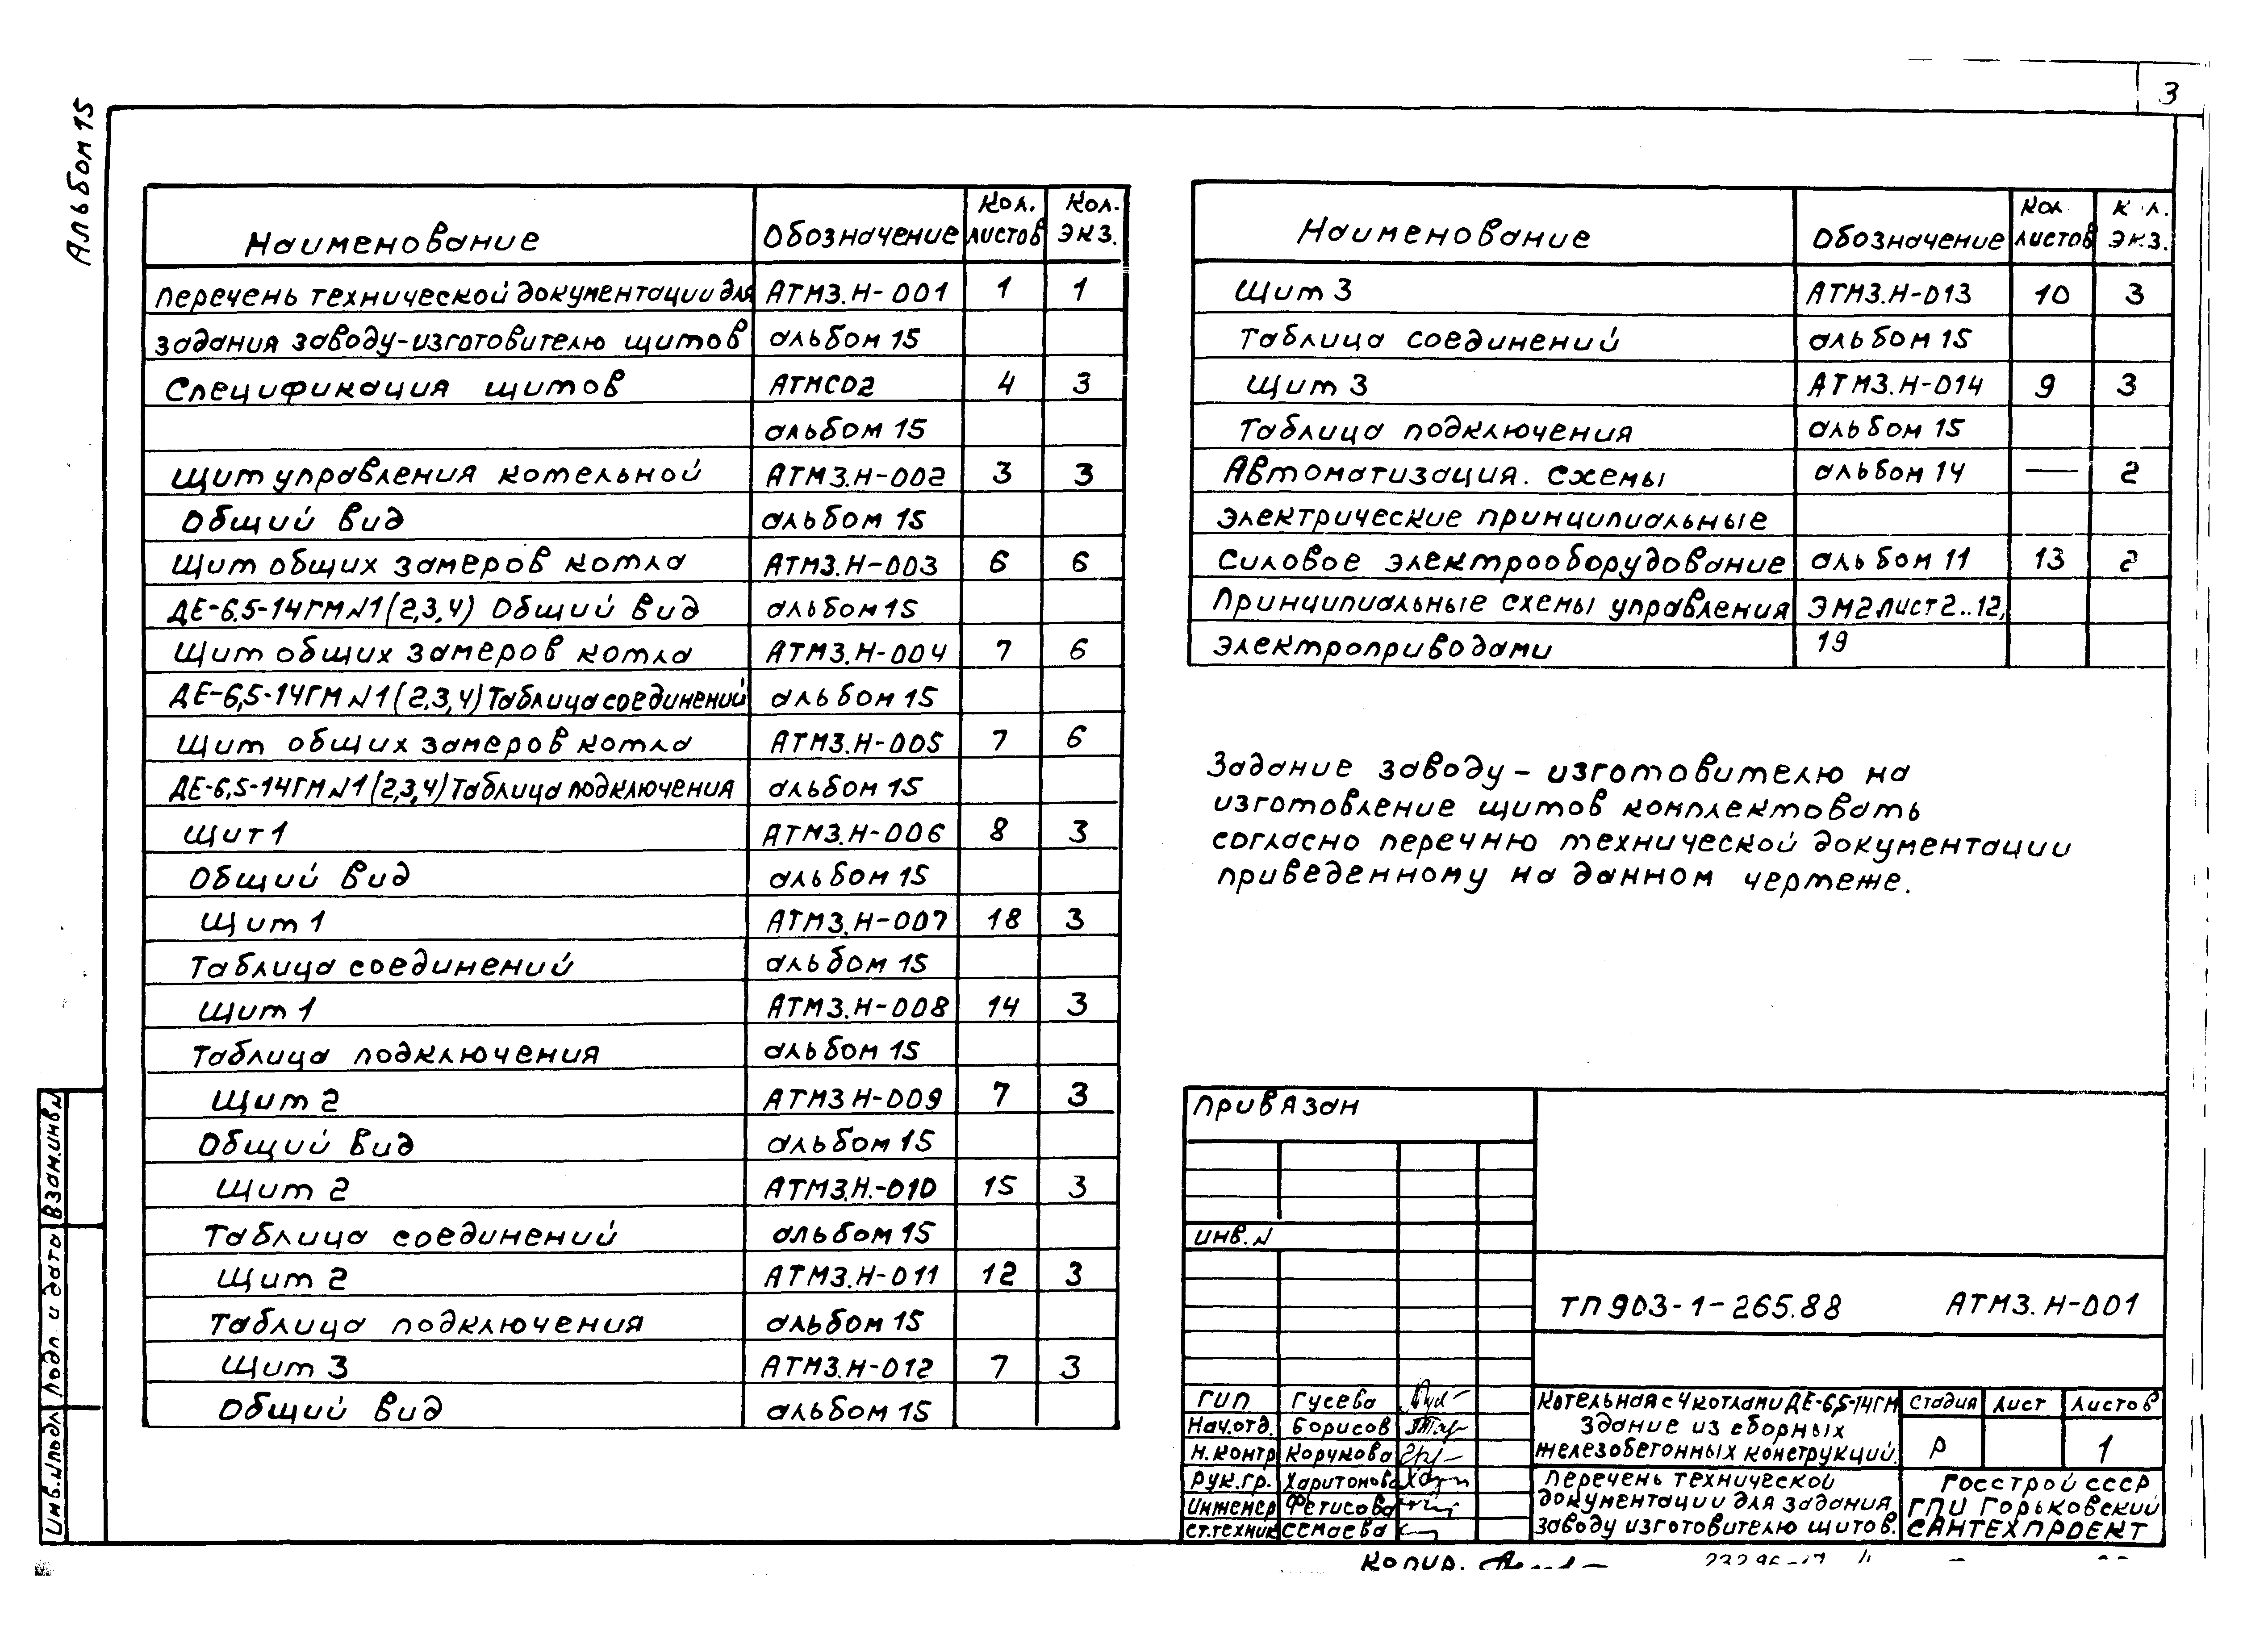 3
Альбом 15
Наименование Обозначение Кол. листов Кол. экз.
Перечень технической документации для АТМ3.Н-001 1 1
задания заводу-изготовителю щитов альбом 15
Спецификация щитов АТМСО2 4 3
альбом 15
Щит управления котельной АТМ3.Н-002 3 3
Общий вид альбом 15
Щит общих замеров котла АТМ3.Н-003 6 6
ДЕ-6.5-14ГМ N1 (2,3,4) Общий вид альбом 15
Щит общих замеров котла АТМ3.Н-004 7 6
ДЕ-6,5-14ГМ N1 (2,3,4) Таблица соединений альбом 15
Щит общих замеров котла АТМ3.Н-005 7 6
ДЕ-6,5-14ГМ N1 (2,3,4) Таблица подключения альбом 15
Щит 1 АТМ3.Н-006 8 3
Общий вид альбом 15
Щит 1 АТМ3.Н-007 18 3
Таблица соединений альбом 15
Щит 1 АТМ3.Н-008 14 3
Таблица подключения альбом 15
Щит 2 АТМ3 Н-009 7 3
Общий вид альбом 15
Щит 2 АТМ3.Н.-010 15 3
Таблица соединений альбом 15
Щит 2 АТМ3.Н-011 12 3
Таблица подключения альбом 15
Щит 3 АТМ3.Н-012 7 3
Общий вид альбом 15
Наименование Обозначение Кол листов К л. экз.
Щит 3 АТМ3.Н-013 10 3
Таблица соединений альбом 15
Щит 3 АТМ3.Н-014 9 3
Таблица подключения альбом 15
Автоматизация. Схемы альбом 14 — 2
электрические принципиальные
Силовое электрооборудование альбом 11 13 2
Принципиальные схемы управления ЭМ2 лист 2..12,
электроприводами 19
Задание заводу - изготовителю на
изготовление щитов комплектовать
согласно перечню технической документации
приведенному на данном чертеже.
Привязан
инв. N
ТП 903-1-265.88 АТМ3. Н-001
ГИП Гусева
Нач.отд. Борисов
Н.контр Корчкова
Рук.гр. Харитонова
Инженер Фетисова
ст.техник Семаева
Котельная с 4 котлами ДЕ-6,5-14ГМ
Здание из сборных
железобетонных конструкций.
Стадия Лист Листов
Р 1
Перечень технической
документации для задания
заводу изготовителю щитов.
Госстрой СССР
ГПИ Горьковский
САНТЕХПРОЕКТ
Взам.инв.N
Подп и дата
Инв.Nподл
Копир.